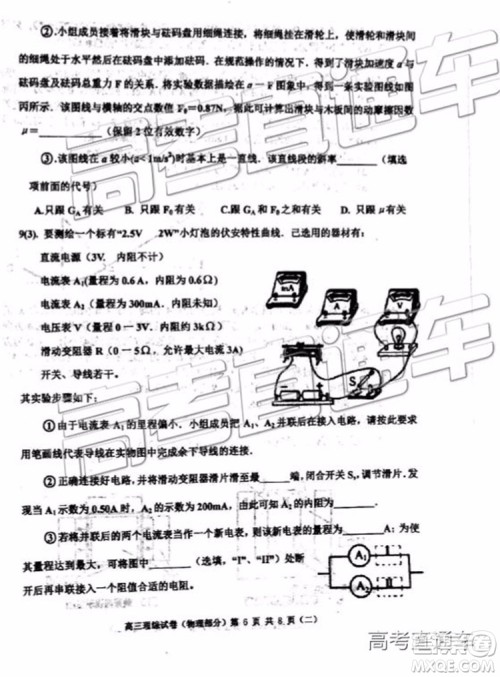 ②.小组成员接着将滑块与砝码盘用细绳连接，将细绳挂在滑轮上，使滑轮和滑块间
的细绳处于水平然后在砝码盘中添加砝码．在规范操作的情况下，得到了滑块加速度 a 与
砝码盘及砝码总重力 F 的关系．将实验数据描绘在 a－F 图象中：得到一来实验图线如图
丙所示．该图线与横轴的交点数值 F₀＝0.87N。据此可计算出滑块与木板间的动摩擦因数
μ＝______（保留 2 位有效数字）
③.该图线在 a 较小(a<1m/s²)时基本上是一直线．该直线段的斜率______（填选
项前面的代号）
A.只跟 G_A 有关 B. 只跟 G_B 有关 C. 跟 G_A 和 G_B 之和有关 D. 只跟μ有关
9(3). 要测绘一个标有“2.5V 2W”小灯泡的伏安特性曲线．己选用的器材有：
直流电源（3V. 内阻不计）
电流表 A₁(量程为 0.6A，内阻为 0.6Ω)
电流表 A₂（量程为 300mA．内阻未知）
电压表 V（量程 0－3V．内阻约 3kΩ）
滑动变阻器 R（0－5Ω．允许最大电流 3A)
开关、导线若干。
mA
A
V
S
其实验步骤如下：
①由于电流表 A₁ 的里程偏小．小组成员把 A₁、A₂ 并联后在接入电路，请按此要求
用笔画线代表导线在实物图中完成余下导线的连接．
②正确连接好电路，并将滑动变阻器滑片滑至最______端，闭环开关 S，调节滑片．发
现当 A₁ 示数为 0.50A 时，A₂ 的示数为 200mA，由此可知 A₂ 的内阻为______。
③若将并联后的两个电流表当作一个新电表，则该新电表的量程为______A；为使
其量程达到最大，可将图中______（选填，“I”、“II”）处断
开后再串联接入一个阻值合适的电阻。
A₁
A₂
高三理综试卷（物理部分）第 6 页 共 8 页（二）
高考直通车
高考直通车
高考直通车